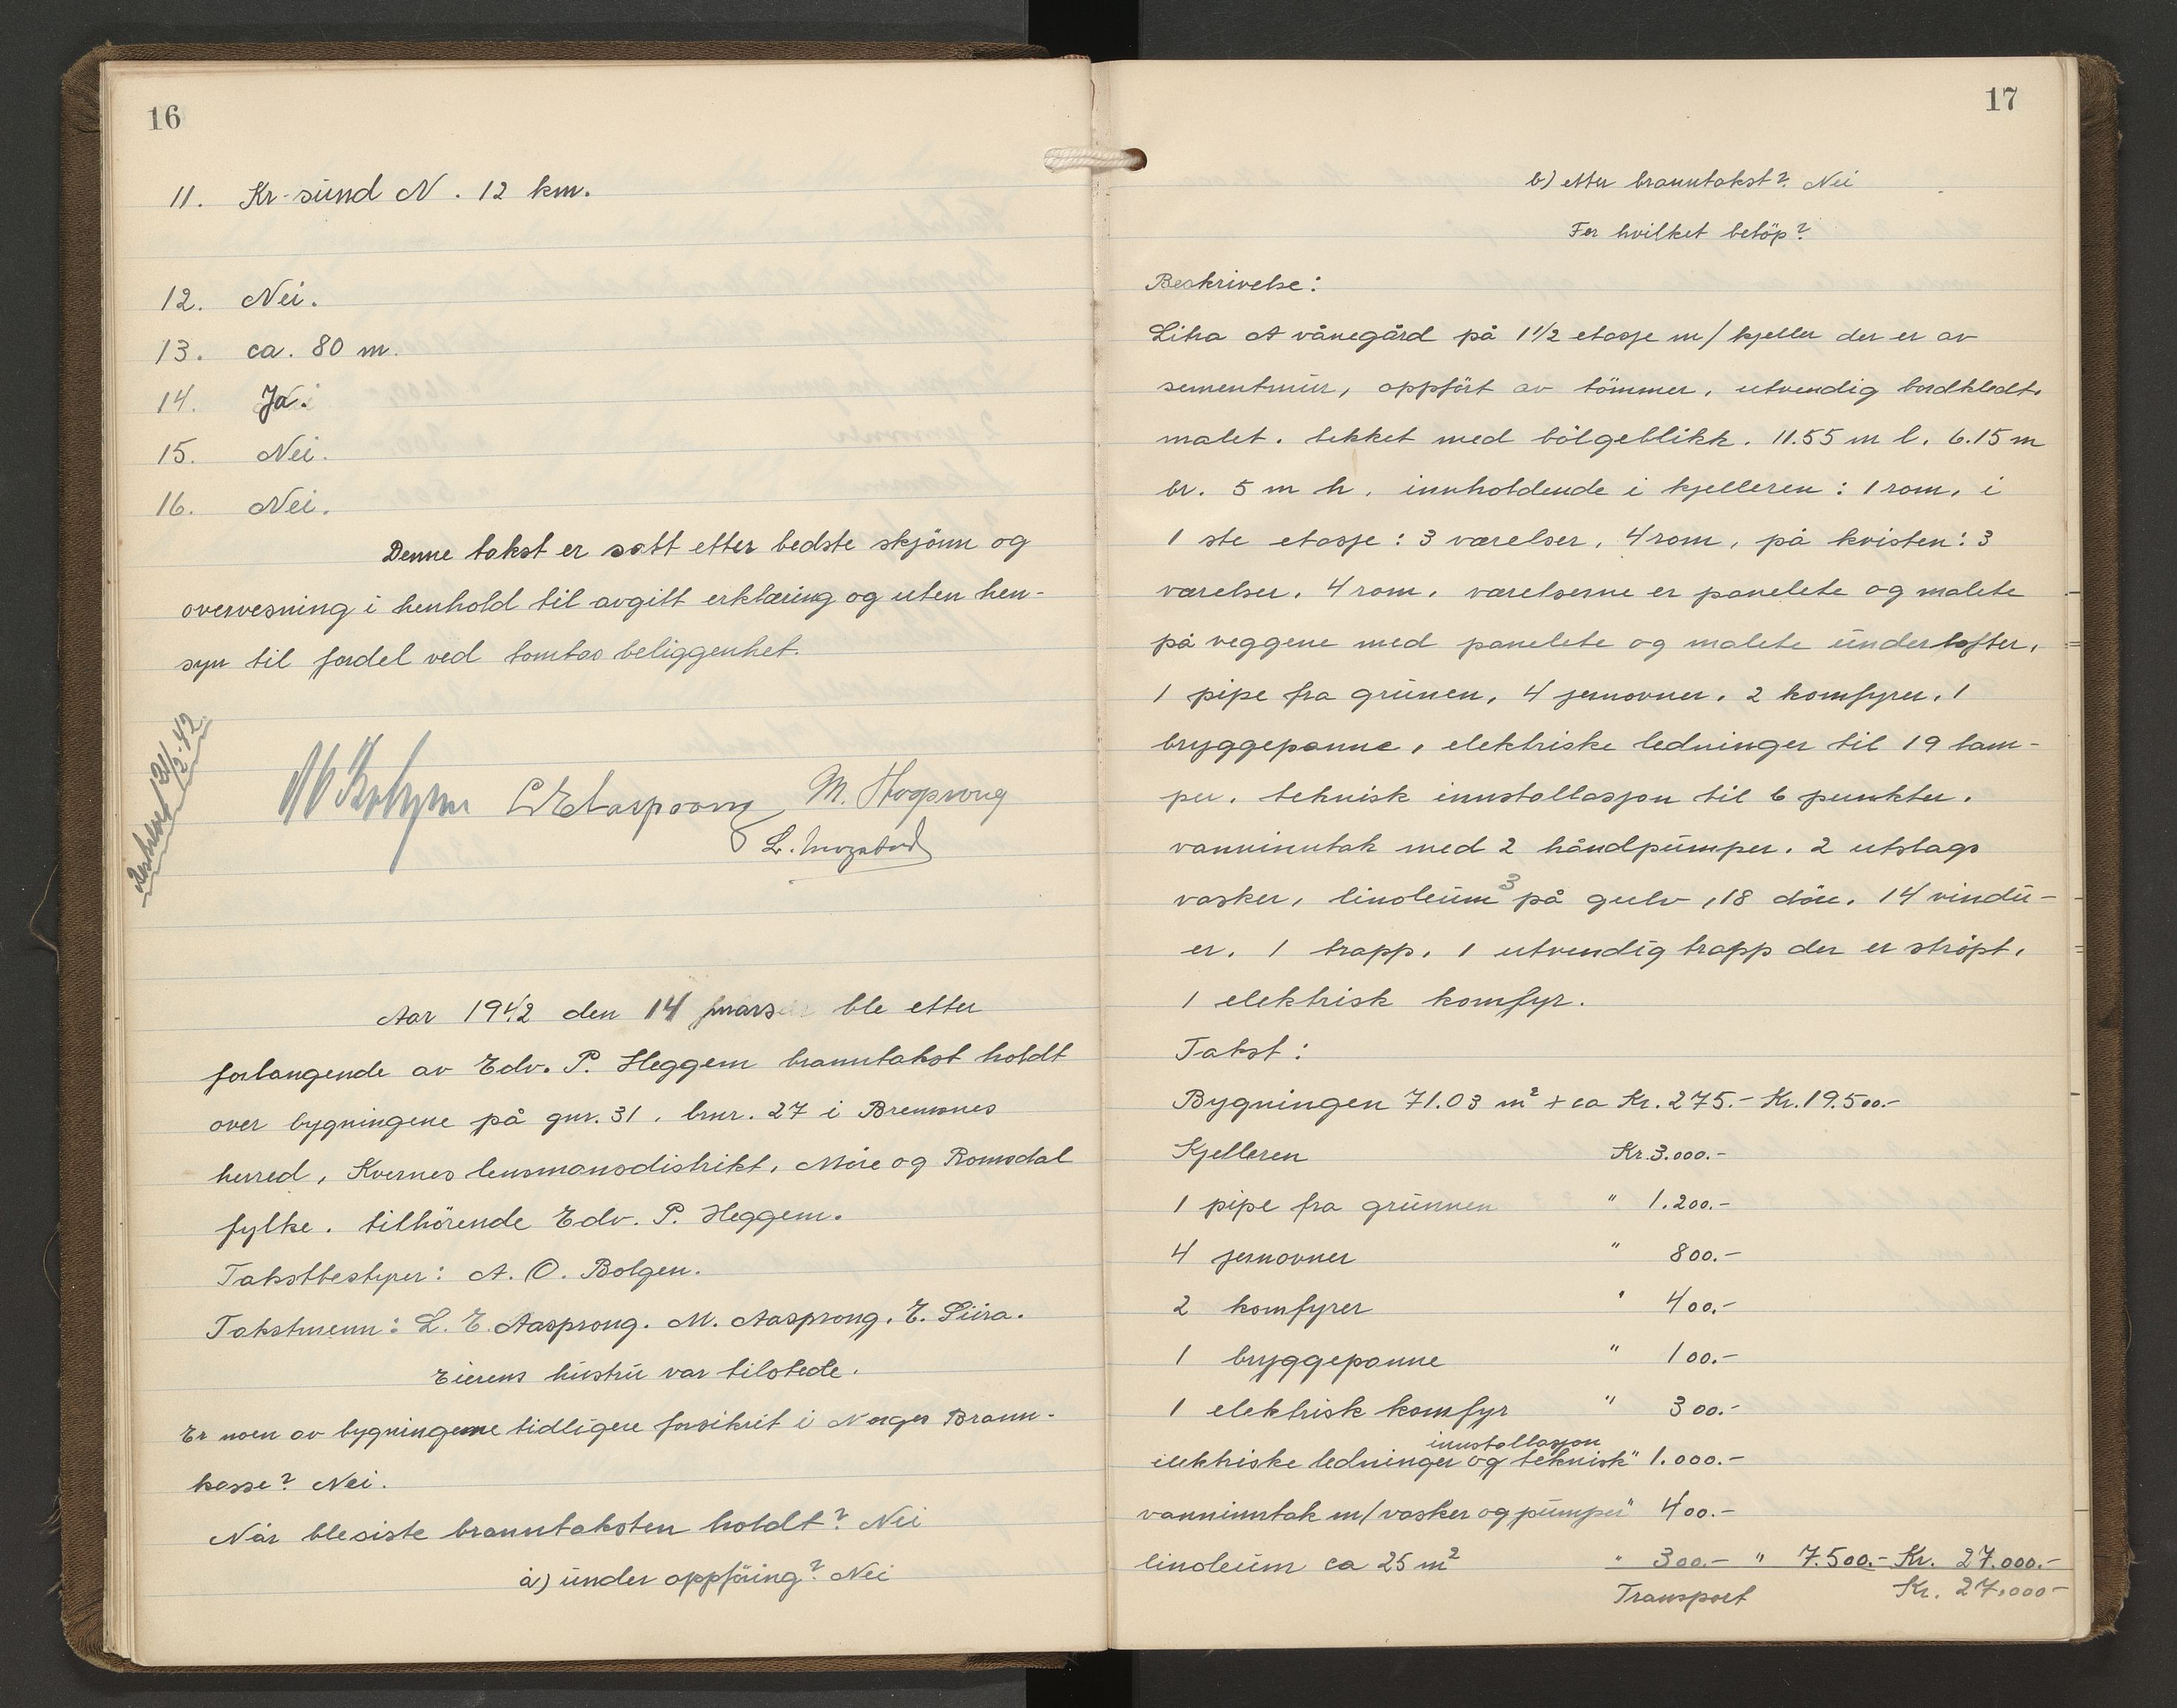 16
11. Kr-sund N. 12 km.
12. Nei.
13. ca. 80 m.
14. Ja.
15. Nei.
16. Nei.
Denne takst er satt etter bedste skjönn og
overvesning i henhold til avgitt erklæring og uten hen-
syn til fordel ved tomtas beliggenhet.
M. Hogsnong
Aar 1942 den 14 mars ble etter
forlangende av Edv. P. Heggem branntakst holdt
over bygningene på gnr. 31, bnr. 27 i Bremsnes
herred, Kvernes lensmansdistrikt, Möre og Romsdal
fylke. tilhörende Edv. P. Heggem.
Takstbestyrer: A. O. Bolgen.
Takstmenn: L. E. Aasprong. M. Aasprong. E. Siira.
Eierens hustru var tilstede.
Er noen av bygningerne tidligere forsikrit i Norges Brann-
kasse? Nei.
Når ble siste branntaksten holdt? Nei
a) under oppföring? Nei
17
b) etter branntakst? Nei
For hvilket belöp?
Beskrivelse:
Litra A vånegård på 1 1/2 etasje m/ kjeller der er av
sementmur, oppfört av tömmer, utvendig bordkledt,
malet. tekket med bölgeblikk. 11.55 m l. 6.15 m
br. 5 m h. innholdende i kjelleren: 1 rom, i
1 ste etasje: 3 værelser, 4 rom, på kvisten: 3
værelser, 4 rom. værelserne er panelete og malete
på veggene med panelete og malete underlofter,
1 pipe fra grunen, 4 jernovner, 2 komfyrer, 1
bryggepanne, elektriske ledninger til 19 lam-
per. teknisk innstallasjon til 6 punkter.
vanninntak med 2 håndpumper. 2 utslags
vasker, linoleum 3 på gulv, 18 döre. 14 vindu-
er. 1 trapp. 1 utvendig trapp der er stöpt.
1 elektrisk komfyr.
Takst:
Bygningen 71.03 m² + ca Kr. 275.- Kr. 19.500.-
Kjelleren Kr. 3.000.-
1 pipe fra grunnen " 1.200.-
4 jernovner " 800.-
2 komfyrer " 400.-
1 bryggepanne " 100.-
1 elektrisk komfyr " 300.-
innstallasjon
elektriske ledninger og teknisk " 1.000.-
vanninntak m/ vasker og pumper " 400.-
linoleum ca 25 m² " 300.- " 7.500.- Kr. 27.000.-
Transport Kr. 27.000-